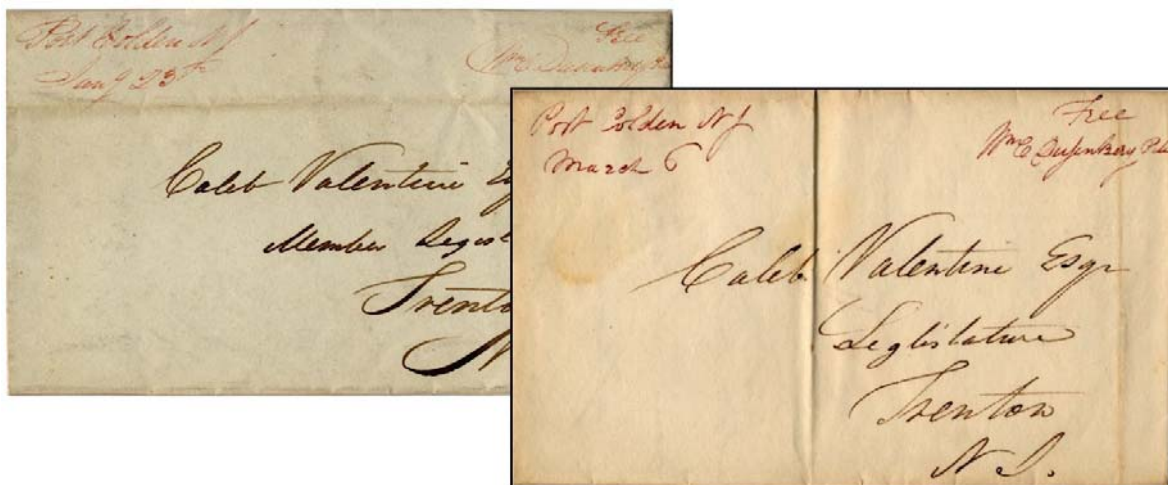 Port Colden NJ
Jany 23
Free
Wm C Dusenbery
Caleb Valentine
Member Legisl
Trento
N
Port Colden NJ
March 6
Free
Wm C Dusenbery
Caleb Valentine Esqr
Leglislature
Trenton
N J.